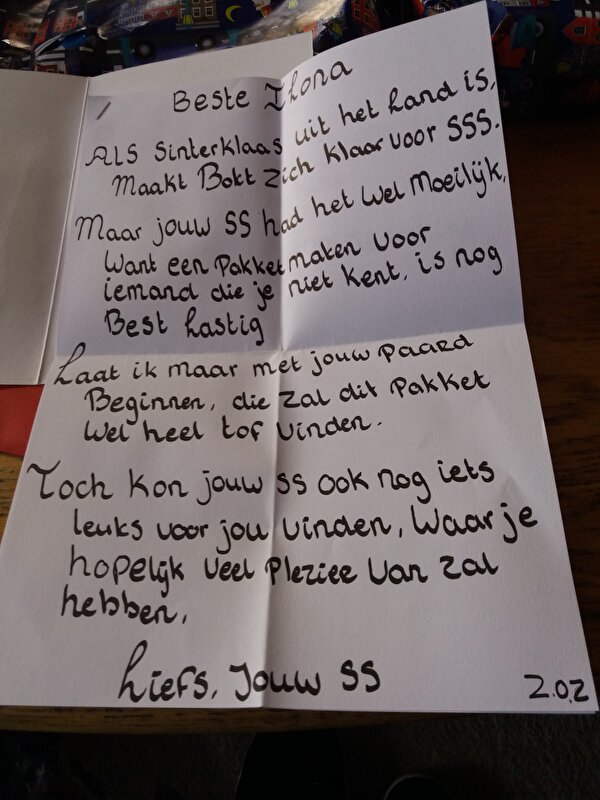 Beste Ilona
Als Sinterklaas uit het land is,
Maakt Bokt zich klaar voor SSS.
Maar jouw SS had het wel Moeilijk,
Want een Pakket maken voor
iemand die je niet kent, is nog
Best Lastig
Laat ik maar met jouw paard
Beginnen, die zal dit Pakket
Wel heel tof vinden.
Toch kon jouw SS ook nog iets
leuks voor jou vinden, Waar je
hopelijk veel Pleziee van zal
hebben,
Liefs, Jouw SS
Z.O.Z